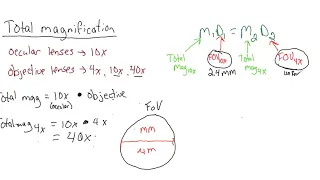 Total magnification
ocular lenses → 10x
objective lenses → 4x, 10x, 40x
Total mag = 10x • objective
(ocular)
Total mag 4x = 10x • 4x
= 40x
FoV
mm
µm
M₁D₁ = M₂D₂
Total mag
FOV
2.4mm
Total mag 4x
FOV 4x